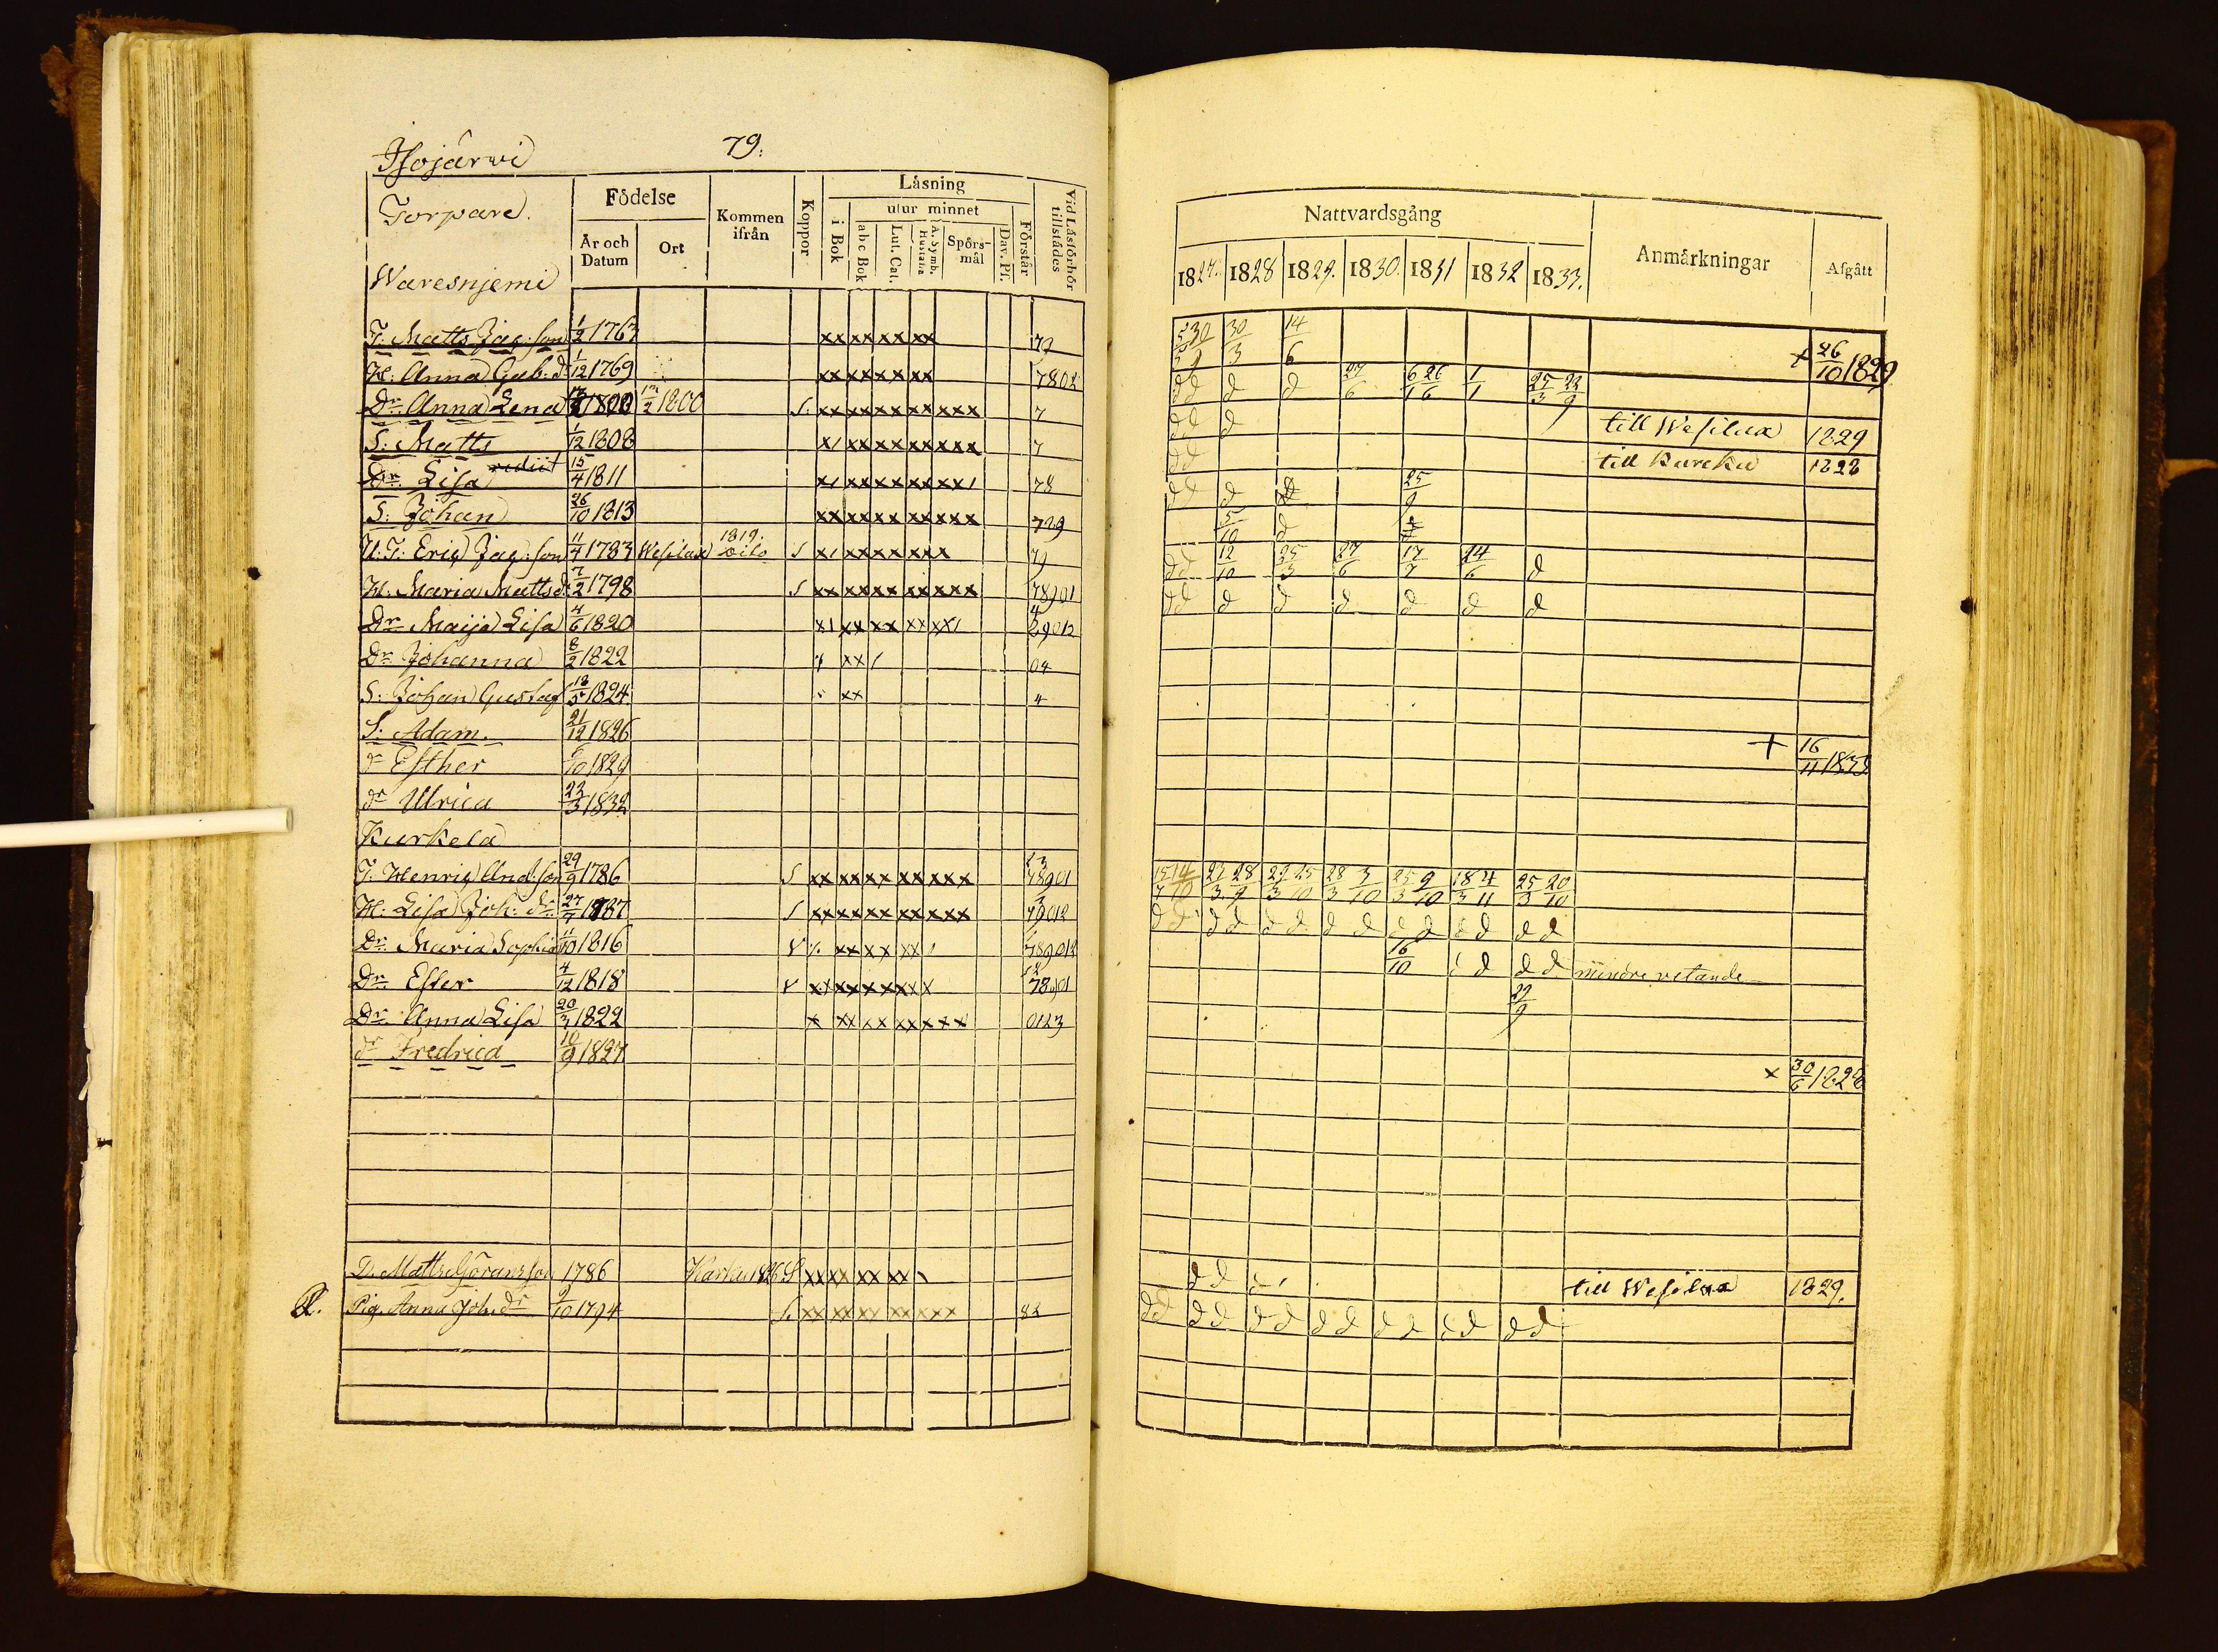 Isojärwi 79.
Torpare.
Waresnjemi
Födelse
År och Datum
Ort
Kommen ifrån
Koppor
Läsning
i Bok
utur minnet
abc Bok
Lut. Cat.
A. Symb. Hustafla
Spörsmål
Dav. Ps.
Förstår
Vid Läsförhör tillstädes
T. Matts Jac:son 1/2 1763 xx xx xx xx 79
H: Anna Gab:dr 1/12 1769 xx xx xx xx 7802
Dr Anna Lena 17/2 1800 S. xx xx xx xx xxx 7
S: Matts 1/12 1808 7
Dr Lisa rediit 15/4 1811 78
S: Johan 26/10 1813 xx xx xx xx xxx 729
U:T: Eric Jac:son 11/4 1783 Wesilax 1819. dito S 79
H. Maria Mattsd. 7/2 1798 S xx xx xx xx xxx 78901
Dr Maija Lisa 4/6 1820 29012
Dr Johanna 8/2 1822 04
S: Johan Gustaf 18/5 1824 xx 4
S: Adam. 21/12 1826
dr Esther 6/10 1829
dr Ulrica 22/3 1832
Kurkela
T: Henric And:son 29/9 1786 S xx xx xx xx xxx 78901
H: Lisa Joh: dr 27/7 1787 S xx xx xx xx xxx 79012
Dr Maria Sophia 11/10 1816 789012
Dr Ester 4/12 1818 78901
Dr Anna Lisa 20/3 1822 x xx xx xx xxx 0123
dr Fredrica 10/9 1827
D. Matts Göransson 1786 Karku 1826 S xx xx xx xx
R. Pig. Anna Joh.dr 9/10 1794 S. xx xx xx xx xxx 82
Nattvardsgång
1827. 1828 1829. 1830. 1831 1832 1833.
Anmärkningar
Afgått
30/9 30/3 14/6 + 26/10 1829
d d d d 27/6 6/1 26/6 1/1 25/3 22/9
d d d till Wesilax 1829
d d till Kureku 1828
d d d d 25/9
5/10 d
d d 12/10 25/3 27/6 17/7 24/6 d
d d d d d d d d
+ 16/11 1833
15/7 14/10 23/3 28/9 22/3 25/10 28/3 3/10 25/3 9/10 18/3 4/11 25/3 20/10
d d d d d d d d d d d d d d
16/10 d d d mindre vetande
22/9
x 30/6 1828
d d till Wesilax 1829.
d d d d d d d d d d d d d d